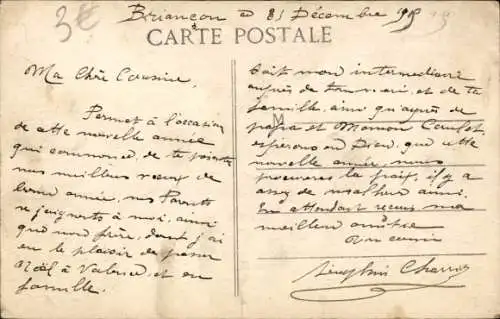 3€
Briançon 31 Décembre
CARTE POSTALE
Ma Chère Cousine,
Permet à l'occasion
de cette nouvelle année
qui commence, de te
nos meilleurs vœux de
bonne année, nos Parents
se joignents à moi, ainsi
que mon frère, dont j'ai
eu le plaisir de passer
Noël à Valence, et en
famille.
mon intermédiaire
auprès de ton mari, et de ta
famille, ainsi qu'auprès de
papa et Maman
espérons en Dieu, que cette
nouvelle année, nous
procurera la paix, il y a
assez de malheur ainsi.
En attendant reçois ma
meilleur amitié
Ton cousin